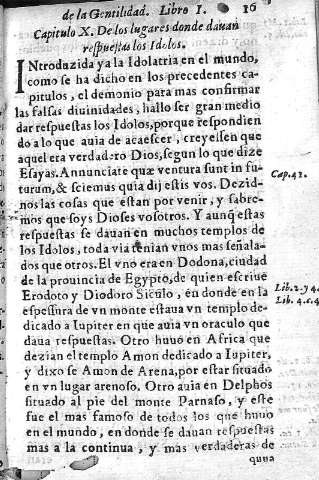 de la Gentilidad. Libro I. 16
Capitulo X. De los lugares donde dauan
respuestas los Idolos.
INtroduzida ya la Idolatria en el mundo,
como se ha dicho en los precedentes ca-
pitulos, el demonio para mas confirmar
las falsas diuinidades, hallo ser gran medio
dar respuestas los Idolos, porque respondien
do a lo que auia de acaescer, creyessen que
aquel era verdadero Dios, segun lo que dize
Esayas. Annunciate quæ ventura sunt in fu-
Cap. 41.
turum, & sciemus quia dij estis vos. Dezid-
nos las cosas que estan por venir, y sabre-
mos que soys Dioses vosotros. Y aunq̃ estas
respuestas se dauan en muchos templos de
los Idolos, toda via tenian vnos mas señala-
dos que otros. El vno era en Dodona, ciudad
de la prouincia de Egypto, de quien escriue
Lib. 2. y 4.
Erodoto y Diodoro Siculo, en donde en la
Lib. 4. c. 4.
espessura de vn monte estaua vn templo de-
dicado a Iupiter en que auia vn oraculo que
daua respuestas. Otro huuo en Africa que
dezian el templo Amon dedicado a Iupiter,
y dixo se Amon de Arena, por estar situado
en vn lugar arenoso. Otro auia en Delphos
situado al pie del monte Parnaso, y este
fue el mas famoso de todos los que huuo
en el mundo, en donde se dauan respuestas
mas a la continua, y mas verdaderas de
quna